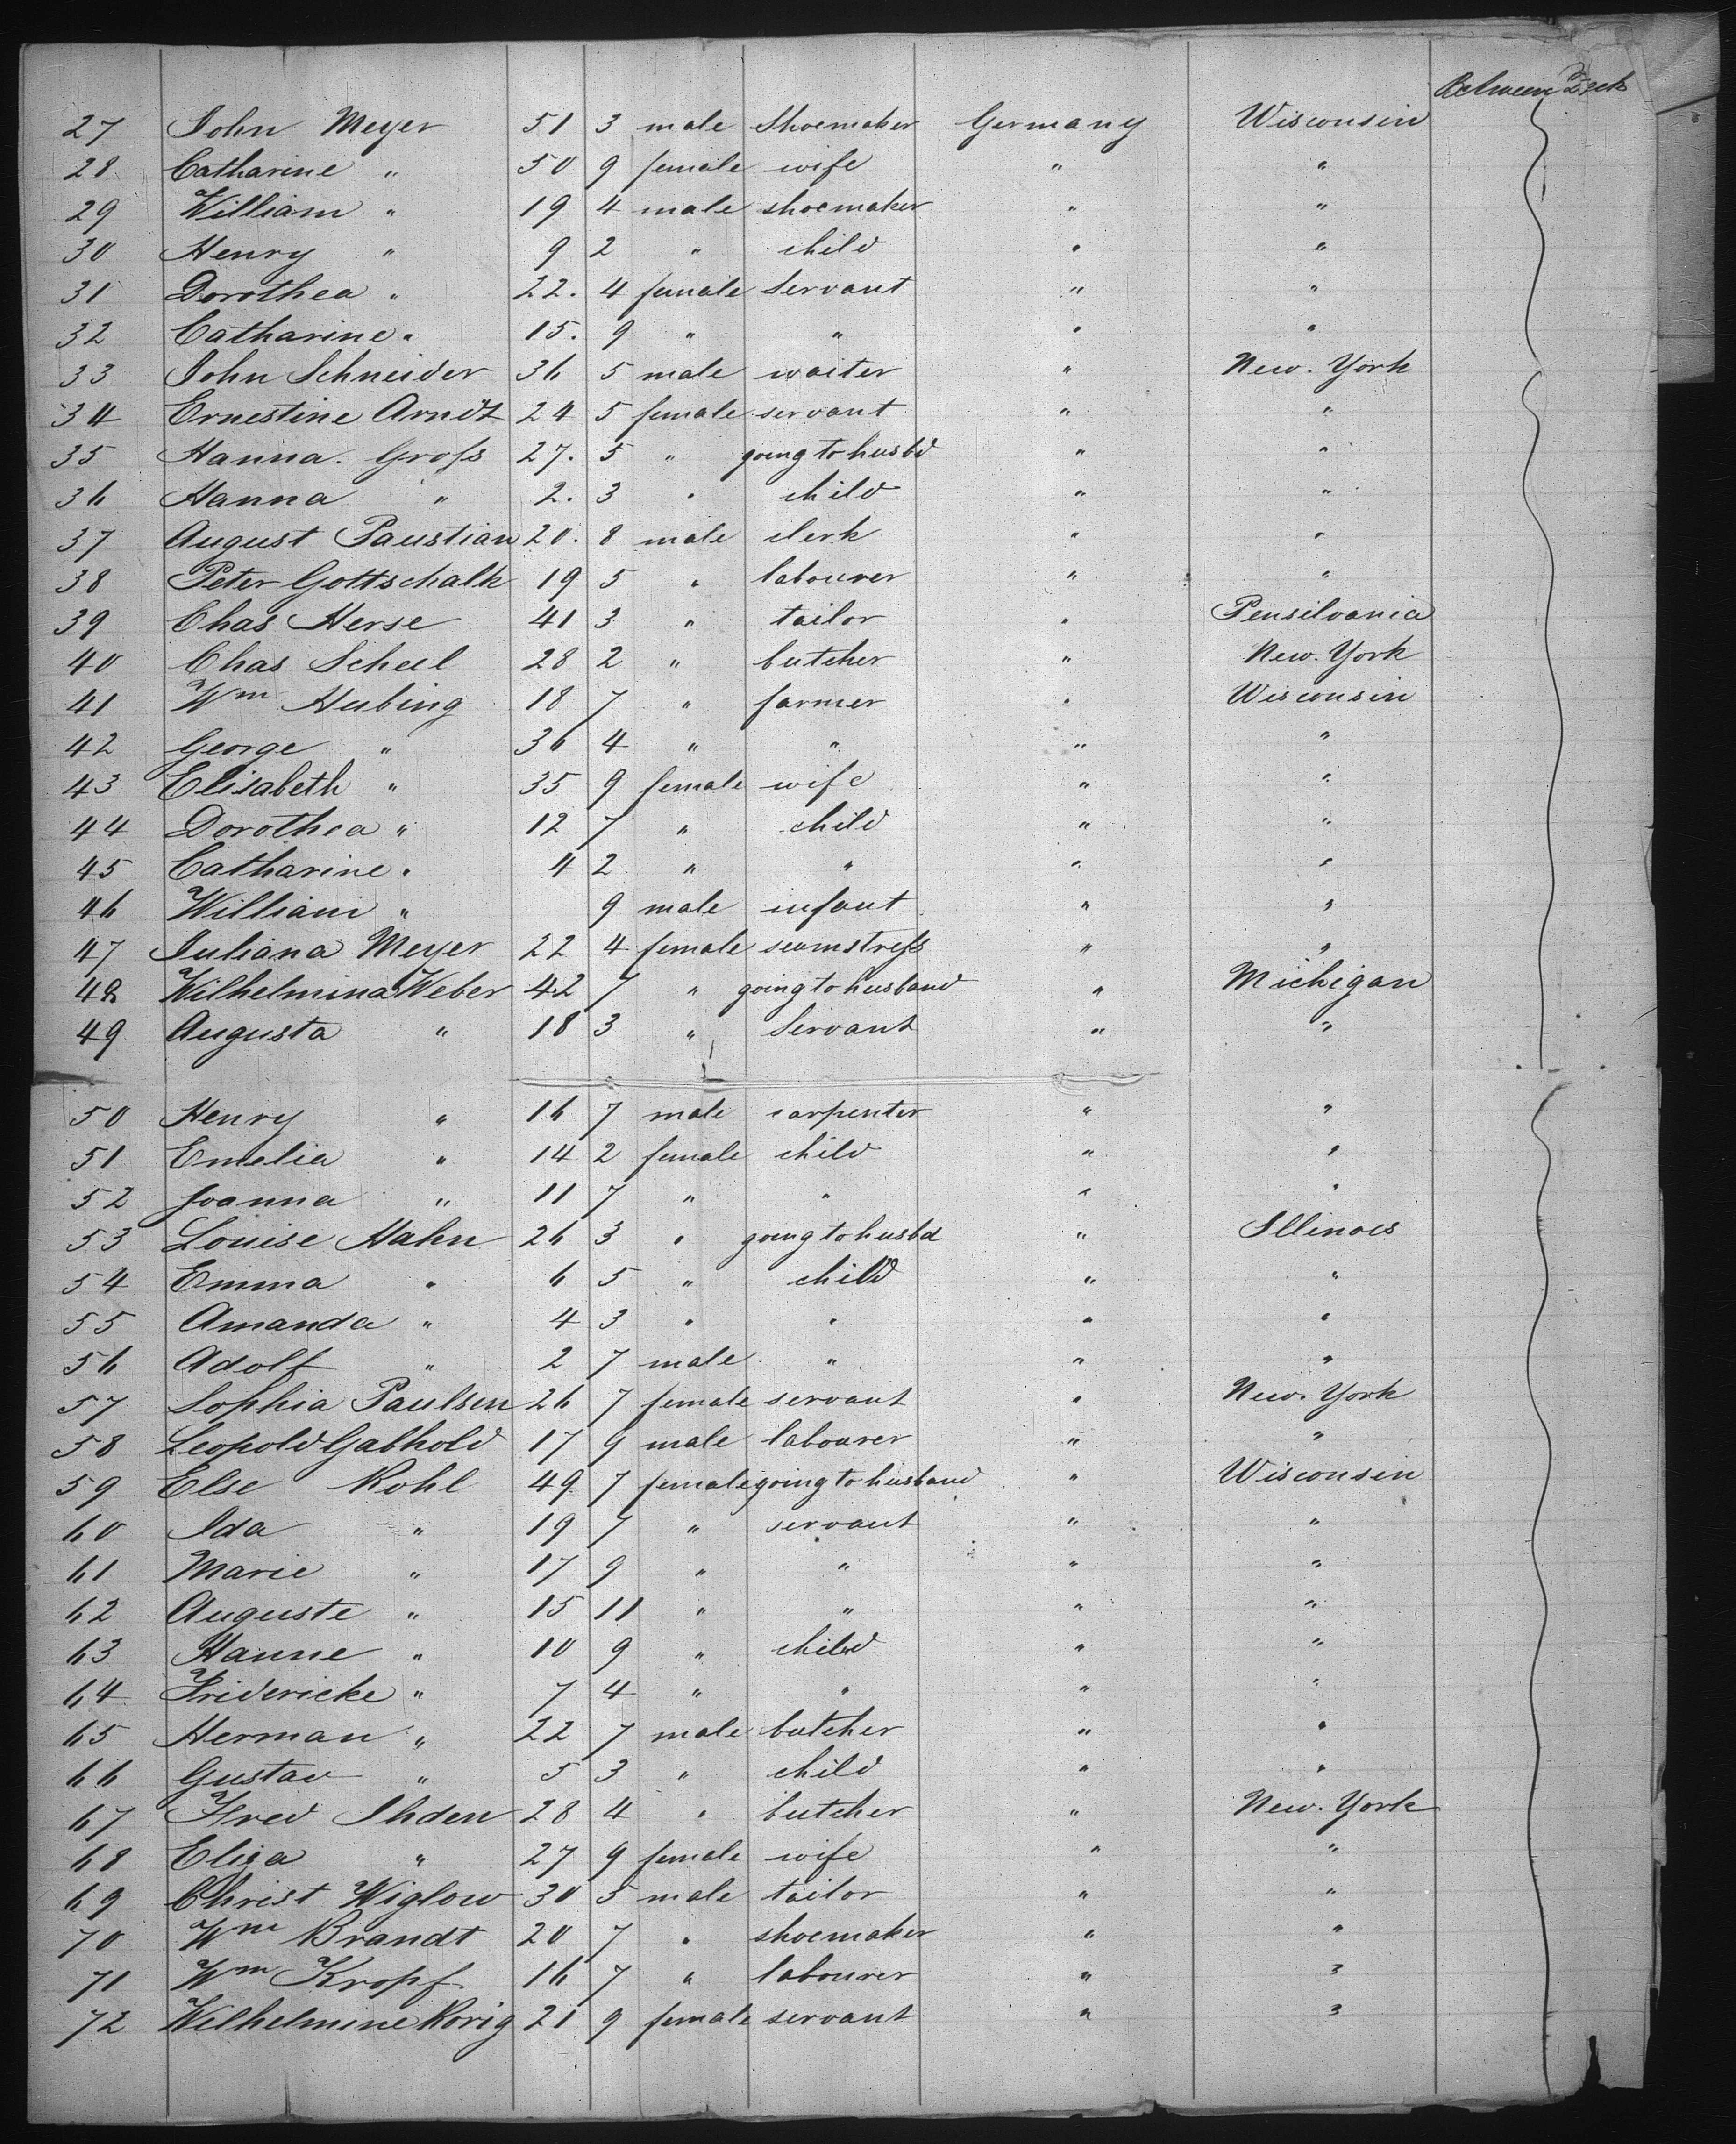 Between Deck
27 John Meyer 51 3 male Shoemaker Germany Wisconsin
28 Catharine " 50 9 female wife " "
29 William " 19 4 male shoemaker " "
30 Henry " 9 2 " child " "
31 Dorothea " 22. 4 female Servant " "
32 Catharine " 15. 9 " " " "
33 John Schneider 36 5 male waiter " New. York
34 Ernestine Arndt 24 5 female servant " "
35 Hanna. Groſs 27. 5 " going to husbd " "
36 Hanna " 2. 3 " child " "
37 August Paustian 20. 8 male clerk " "
38 Peter Gottschalk 19 5 " labourer " "
39 Chas Herse 41 3 " tailor " Pensilvania
40 Chas Scheel 28 2 " butcher " New. York
41 Wm Hubing 18 7 " farmer " Wisconsin
42 George " 36 4 " " " "
43 Elisabeth " 35 9 female wife " "
44 Dorothea " 12 7 " child " "
45 Catharine " 4 2 " " " "
46 William " 9 male infant " "
47 Juliana Meyer 22 4 female seamstreſs " "
48 Wilhelmina Weber 42 7 " going to husband " Michigan
49 Augusta " 18 3 " Servant " "
50 Henry " 16 7 male carpenter " "
51 Emelia " 14 2 female child " "
52 Joanna " 11 7 " " " "
53 Louise Hahn 26 3 " going to husbd " Illinois
54 Emma " 6 5 " child " "
55 Amanda " 4 3 " " " "
56 Adolf " 2 7 male " " "
57 Sophia Paulsen 26 7 female servant " New. York
58 Leopold Gabhold 17 9 male labourer " "
59 Else Kohl 49 7 female going to husband " Wisconsin
60 Ida " 19 7 " servant " "
61 Marie " 17 9 " " " "
62 Auguste " 15 11 " " " "
63 Hanne " 10 9 " child " "
64 Fridericke " 7 4 " " " "
65 Herman " 22 7 male butcher " "
66 Gustav " 5 3 " child " "
67 Fred Ihden 28 4 " butcher " New. York
68 Eliza " 27 9 female wife " "
69 Christ Wiglow 30 5 male tailor " "
70 Wm Brandt 20 7 " shoemaker " "
71 Wm Kropf 16 7 " labourer " "
72 Wilhelmine Korig 21 9 female servant " "